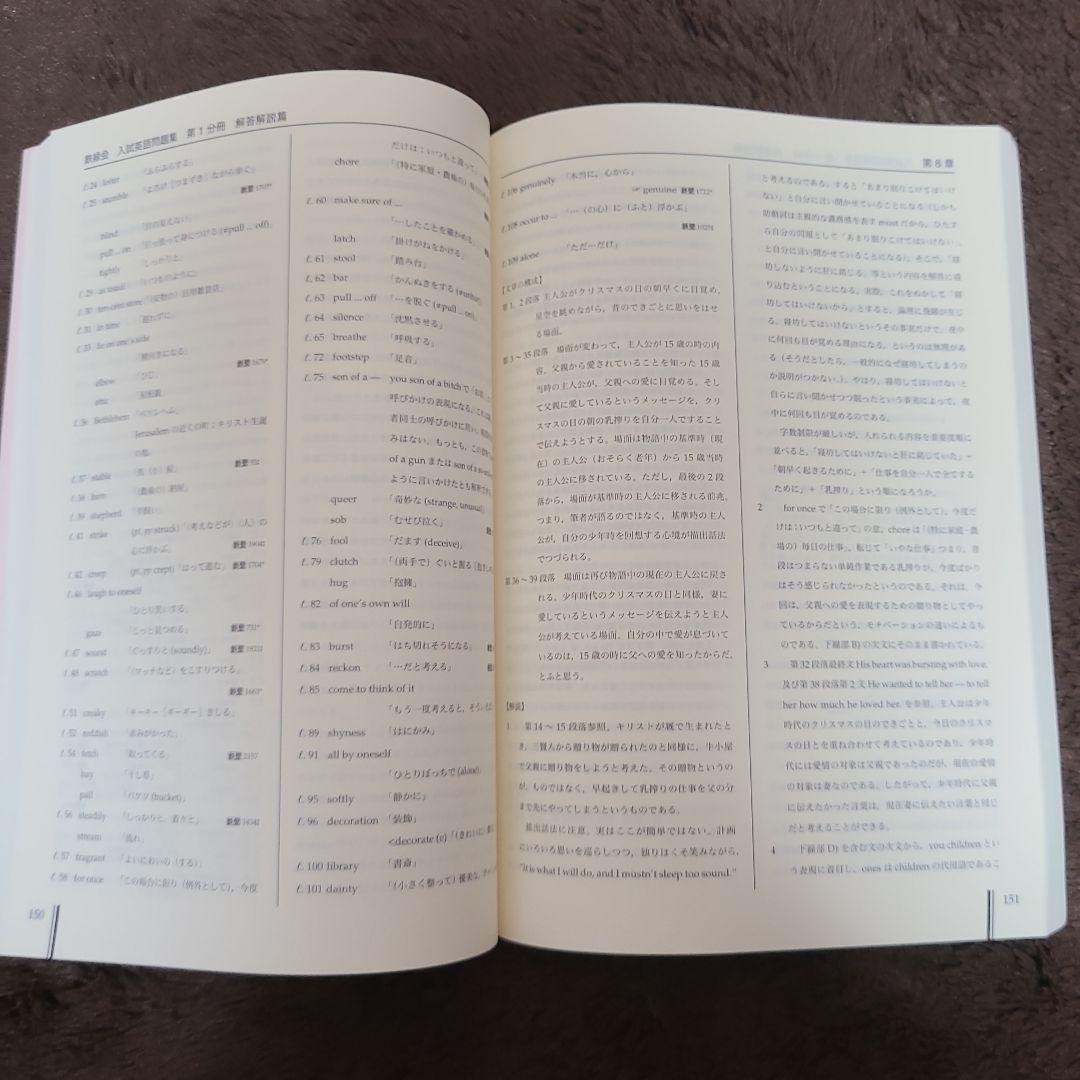 鉄緑会 入試英語問題集 第1分冊 解答解説篇
ℓ. 24 teeter 「ふらふらする」
ℓ. 25 stumble 「よろけ［つまずき］ながら歩く」
新聖 1703*
blind 「目の見えない」
pull ... on 「引っ張って身につける (⇔pull ... off)」
tightly 「しっかりと」
ℓ. 29 as usual 「いつものように」
ℓ. 30 ten-cent store
ℓ. 31 in time
ℓ. 33 lie on one's side
「横向きになる」
新聖 1679*
elbow 「ひじ」
attic 「屋根裏」
ℓ. 36 Bethlehem 「ベツレヘム」
Jerusalem の近くの町：キリスト生誕
の地
ℓ. 37 stable
ℓ. 38 barn 「(農場の) 納屋」
ℓ. 39 shepherd 「羊飼い」
ℓ. 41 strike (pt, pp struck)「(考えなどが)(人)の
心に浮かぶ」
新聖 1904①
ℓ. 42 creep (pt, pp crept)「はって進む」 新聖 1704*
ℓ. 46 laugh to oneself
「ひとり笑いする」
gaze 「じっと見つめる」 新聖 731*
ℓ. 47 sound 「ぐっすりと (soundly)」
ℓ. 48 scratch 「(マッチなど) をこすりつける」
新聖 1663*
ℓ. 51 creaky 「キーキー［ギーギー］きしる」
ℓ. 52 reddish 「赤みがかった」
ℓ. 54 fetch 「取ってくる」 新聖 2157
hay 「干し草」
pail 「バケツ (bucket)」
ℓ. 56 steadily 「しっかりと、着々と」
stream 「流れ」
ℓ. 57 fragrant 「よいにおいの（する）」
ℓ. 58 for once 「この場合に限り（例外として）, 今度
150
だけは：いつもと違って」
chore 「(特に家庭・農場の)
ℓ. 60 make sure of ...
「…したことを確かめる」
latch 「掛けがねをかける」
ℓ. 61 stool 「踏み台」
ℓ. 62 bar 「かんぬきをする (⇔unbar)
ℓ. 63 pull ... off 「…を脱ぐ (⇔pull ... on)」
ℓ. 64 silence 「沈黙させる」
ℓ. 65 breathe 「呼吸する」
ℓ. 72 footstep 「足音」
ℓ. 75 son of a — you son of a bitch で「お前
呼びかけの表現になる。これは
者同士の呼びかけに用い、
みはない。もっとも、この
of a gun または son of a
ように言いかけたとも解釈
queer 「奇妙な (strange, unusual)
sob 「むせび泣く」
ℓ. 76 fool 「だます (deceive)」
ℓ. 79 clutch 「(両手で) ぐいと握る
hug 「抱擁」
ℓ. 82 of one's own will
「自発的に」
ℓ. 83 burst 「はち切れそうになる」
ℓ. 84 reckon 「…だと考える」
ℓ. 85 come to think of it
「もう一度考えると，
ℓ. 89 shyness 「はにかみ」
ℓ. 91 all by oneself
「ひとりぼっちで (alone)」
ℓ. 95 softly 「静かに」
ℓ. 96 decoration 「装飾」
<decorate (v)「(きれいに)
ℓ. 100 library 「書斎」
ℓ. 101 dainty 「(小さく整って) 優美な,
第8章
ℓ. 106 genuinely 「本当に，心から」
☞ genuine 新聖 1712*
ℓ. 108 occur to ... 「…（の心）に（ふと）浮かぶ」
新聖 1027①
ℓ. 109 alone 「ただ…だけ」
【文章の構成】
第1，2段落 主人公がクリスマスの日の朝早くに目覚め，
星空を眺めながら，昔のできごとに思いをはせ
る場面。
第3〜35段落 場面が変わって，主人公が15歳の時の内
容。父親から愛されていることを知った15歳
当時の主人公が，父親への愛に目覚める。そし
て父親に愛しているというメッセージを，クリ
スマスの日の朝の乳搾りを自分一人ですること
で伝えようとする。場面は物語中の基準時（現
在）の主人公（おそらく老年）から15歳当時
の主人公に移される。ただし，最後の2段
落から，場面が基準時の主人公に移される前兆。
つまり，筆者が語るのではなく，基準時の主人
公が，自分の少年時を回想する心境が描出話法
でつづられる。
第36〜39段落 場面は再び物語中の現在の主人公に戻さ
れる。少年時代のクリスマスの日と同様，妻に
愛しているというメッセージを伝えようと主人
公が考えている場面。自分の中で愛が息づいて
いるのは，15歳の時に父への愛を知ったからだ，
とふと思う。
【解説】
1 第14〜15段落参照。キリストが厩で生まれたと
き，三賢人から贈り物が贈られたのと同様に，牛小屋
で父親に贈り物をしようと考えた。その贈物というの
が，ものではなく，早起きして乳搾りの仕事を父の分
まで先にやってしまうというものである。
描出話法に注意。実はここが簡単ではない。計画
にいろいろ思いを巡らしつつ，独りほくそ笑みながら，
"It is what I will do, and I mustn't sleep too sound."
と考えるのである。すると「あまり眠りこけてはいけ
ない」と自分に言い聞かせていることになる（しかも
助動詞は主観的な義務感を表す must だから，ひたす
ら自分の問題として「あまり眠りこけてはいけない」
と自分に言い聞かせていることになる）。そこで，「寝
坊しないように肝に銘じる」等という内容を解答に盛
り込むということになる。実際，これをぬかして「寝
坊してはいけないから」とすると，論理に飛躍が生じ
る。寝坊してはいけないというその事実だけで，夜中
に何回も目が覚める理由になる，というのは無理があ
る（そうだとしたら，一般的になぜ寝坊してしまうの
か説明がつかない）。やはり，寝坊してはいけないと
自らに言い聞かせつつ眠ったという事実によって，夜
中に何回も目が覚めるのである。
字数制限が厳しいが，入れられる内容を重要度順に
並べると，「寝坊してはいけないと肝に銘じていた」＋
「朝早く起きるために」＋「仕事を自分一人で全てする
ために」＋「乳搾り」という順になろうか。
2 for once で「この場合に限り（例外として），今度
だけは：いつもと違って」の意。chore は「(特に家庭・農
場の) 毎日の仕事」，転じて「いやな仕事」つまり，普
段はつまらない単純作業である乳搾りが，今度ばかり
はそう感じられなかったというのである。それは，今
回は，父親への愛を表現するための贈り物としてやっ
ているからだという，モチベーションの違いによるも
のである。下線部 B) の次文にそのまま書かれている。
3 第32段落最終文 His heart was bursting with love.
及び第38段落第2文 He wanted to tell her — to tell
her how much he loved her. を参照。主人公は少年
時代のクリスマスの日のできごとと，今日のクリスマ
スの日とを重ね合わせて考えているのであり，少年時
代には愛情の対象は父親であったのだが，現在の愛情
の対象は妻なのである。したがって，少年時代に父親
に伝えたかった言葉は，現在妻に伝えたい言葉と同じ
だと考えることができる。
4 下線部 D) を含む文の次文から，you children とい
う表現に着目し，ones は children の代用語であるこ
151